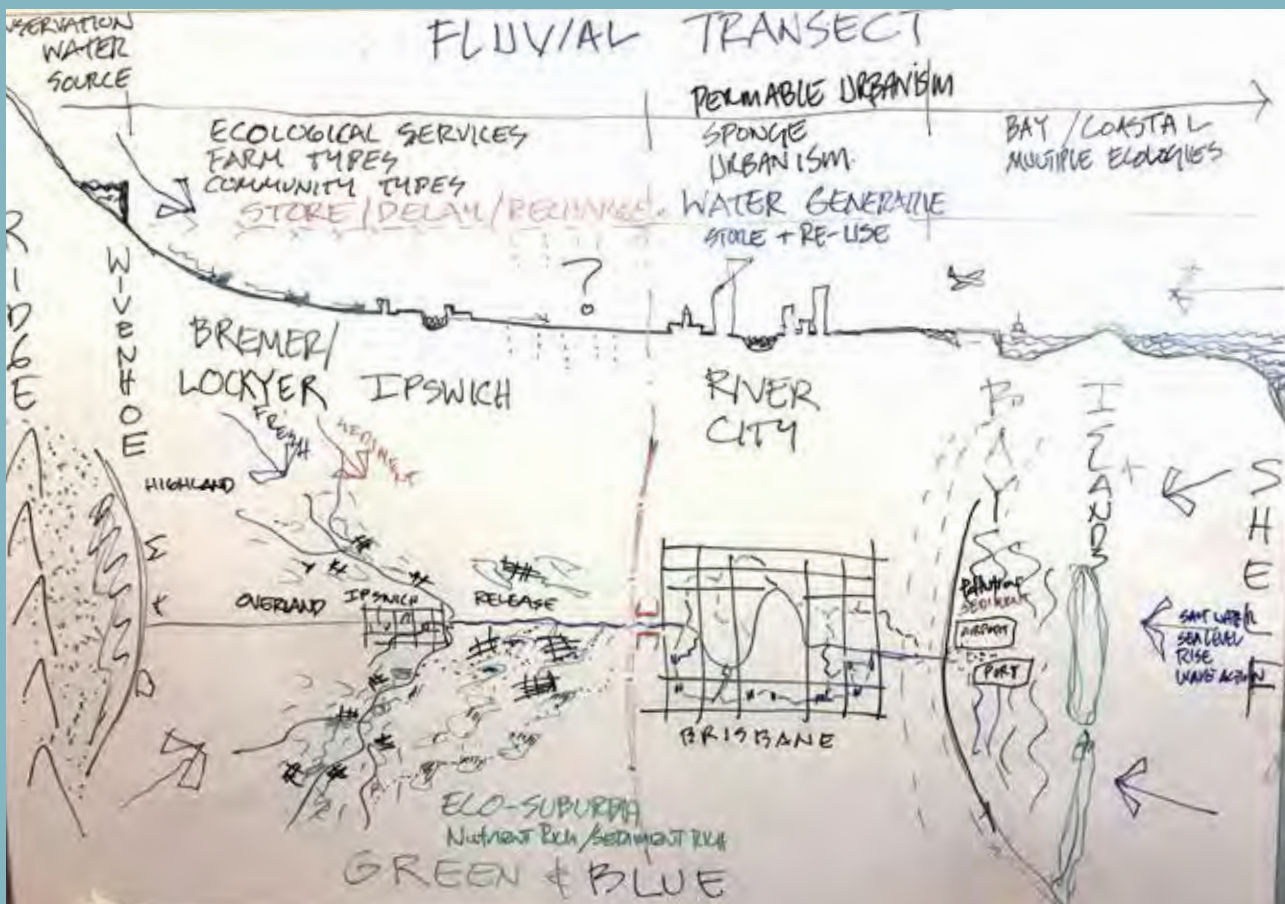 FLUVIAL TRANSECT
WATER
SOURCE
PERMABLE URBANISM
ECOLOGICAL SERVICES
FARM TYPES
COMMUNITY TYPES
STORE/DELAY/RECHARGE.
SPONGE
URBANISM
WATER GENERATIVE
STORE + RE-USE
BAY/COASTAL
MULTIPLE ECOLOGIES
RIDGE
WIVENHOE
?
BREMER/
LOCKYER
IPSWICH
RIVER
CITY
BAY
ISLANDS
FRESH
SEDIMENT
HIGHLAND
OVERLAND
IPSWICH
RELEASE
BRISBANE
SEDIMENT
AIRPORT
PORT
SALT WATER
SEA LEVEL
RISE
WAVE ACTION
ECO-SUBURBIA
Nutrient Rich/SEDIMENT RICH
GREEN & BLUE